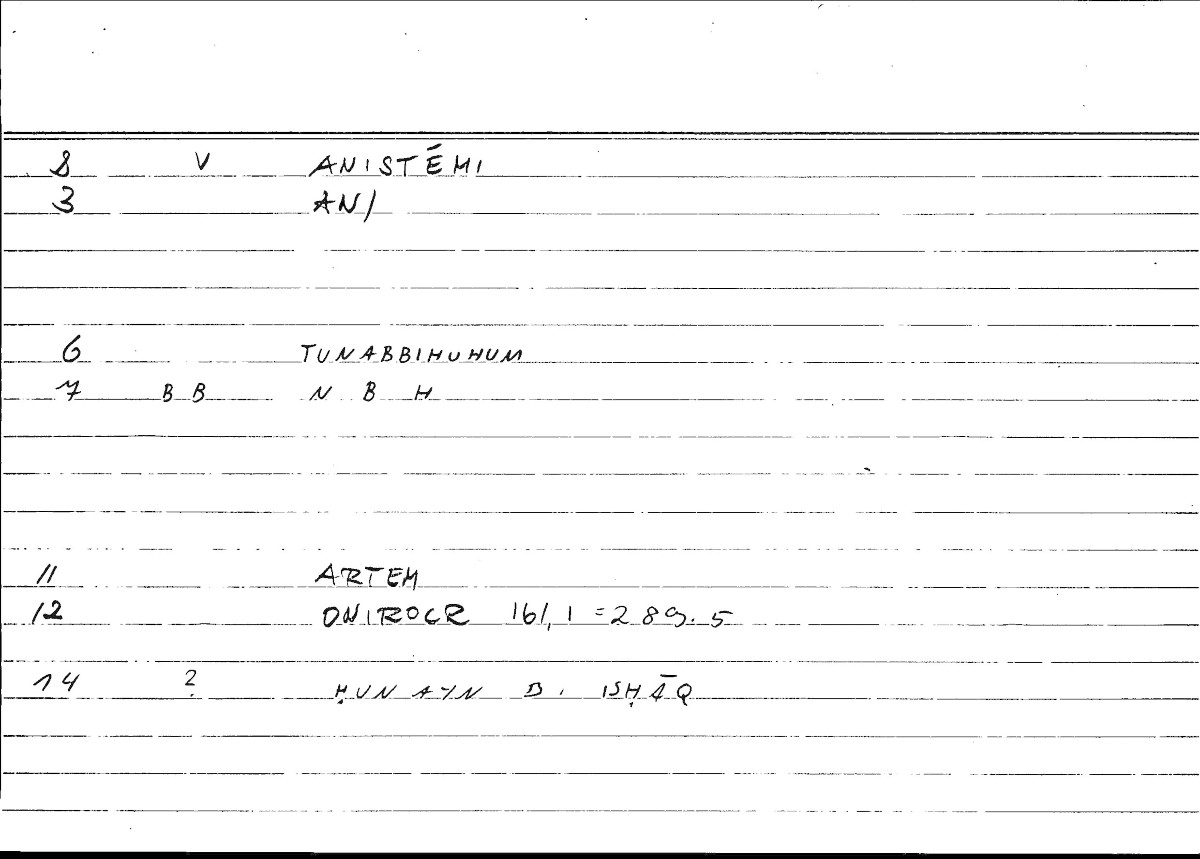 8 V ANISTĒMI
3 AN/
6 TUNABBIHUHUM
7 BB N B H
11 ARTEM
12 ONIROCR 161,1 = 289.5
14 ? ḤUNAYN B. ISḤĀQ